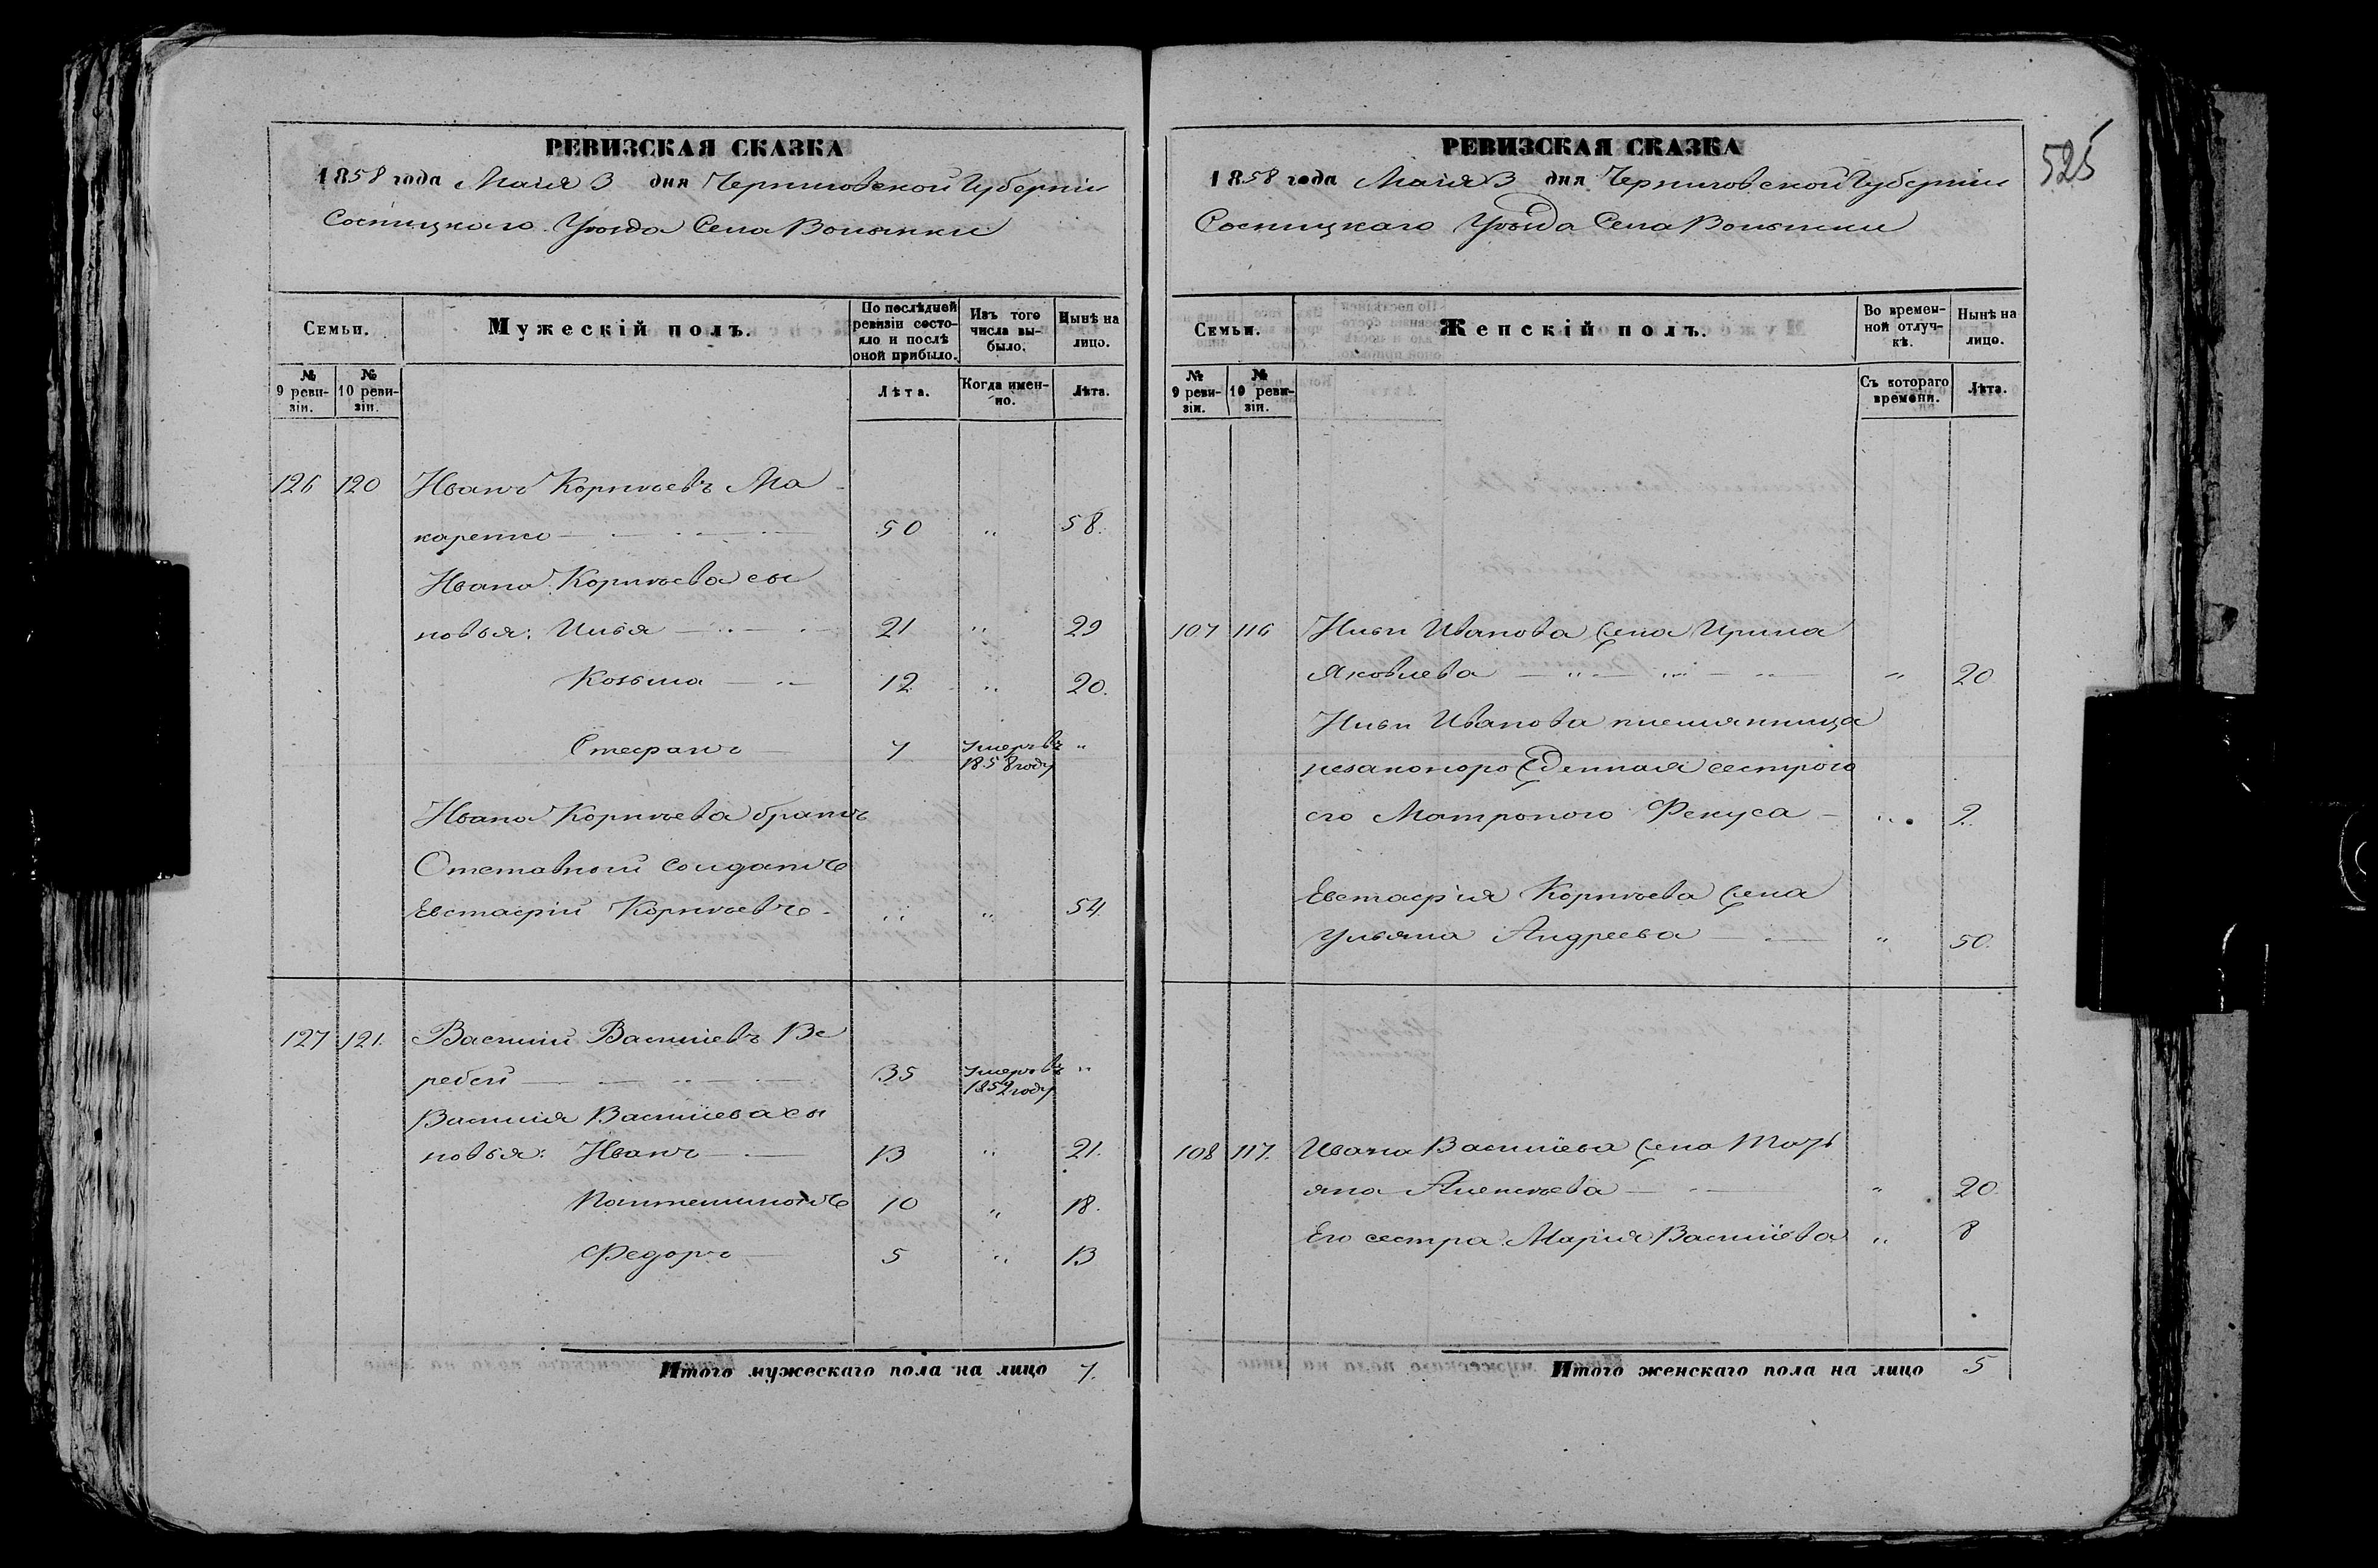 РЕВИЗСКАЯ СКАЗКА
1858 года Маия 3 дня Черниговской Губерніи
Сосницкаго Уѣзда Села Волынки
Семьи.
Мужескій полъ.
По послѣдней ревизіи состояло и послѣ оной прибыло.
Изъ того числа выбыло.
Нынѣ на лицо.
№ 9 ревизіи.
№ 10 ревизіи.
Лѣта.
Когда именно.
Лѣта.
126 120 Иванъ Корнѣевъ Ма-
каренко 50 „ 58.
Ивана Корнѣева сы
новья: Илья 21 „ 29
Козьма 12 „ 20.
Стефанъ 7 умеръ въ 1858 году „
Ивана Корнѣева братъ
Отставной солдатъ
Евстафій Корнѣевъ „ „ 54
127 121. Василій Васильевъ Ве
ребей 35 умеръ въ 1852 году „
Василія Васильева сы
новья: Иванъ 13 „ 21.
Пантелимонъ 10 „ 18.
Федоръ 5 „ 13
Итого мужескаго пола на лицо 7.
525
РЕВИЗСКАЯ СКАЗКА
1858 года Маия 3 дня Черниговской Губерніи
Сосницкаго Уѣзда Села Волынки
Семьи.
Женскій полъ.
Во временной отлучкѣ.
Нынѣ на лицо.
№ 9 ревизіи.
№ 10 ревизіи.
Съ котораго времени.
Лѣта.
107 116 Ильи Иванова жена Ирина
Яковлева „ 20
Ильи Иванова племянница
незаконорожденная сестрою
его Матроною Фекуса „ 2.
Евстафія Корнѣева жена
Ульяна Андреева „ 50.
108 117. Ивана Васильева жена Тать
яна Алексѣева „ 20
Его сестра Марія Васильева „ 8
Итого женскаго пола на лицо 5